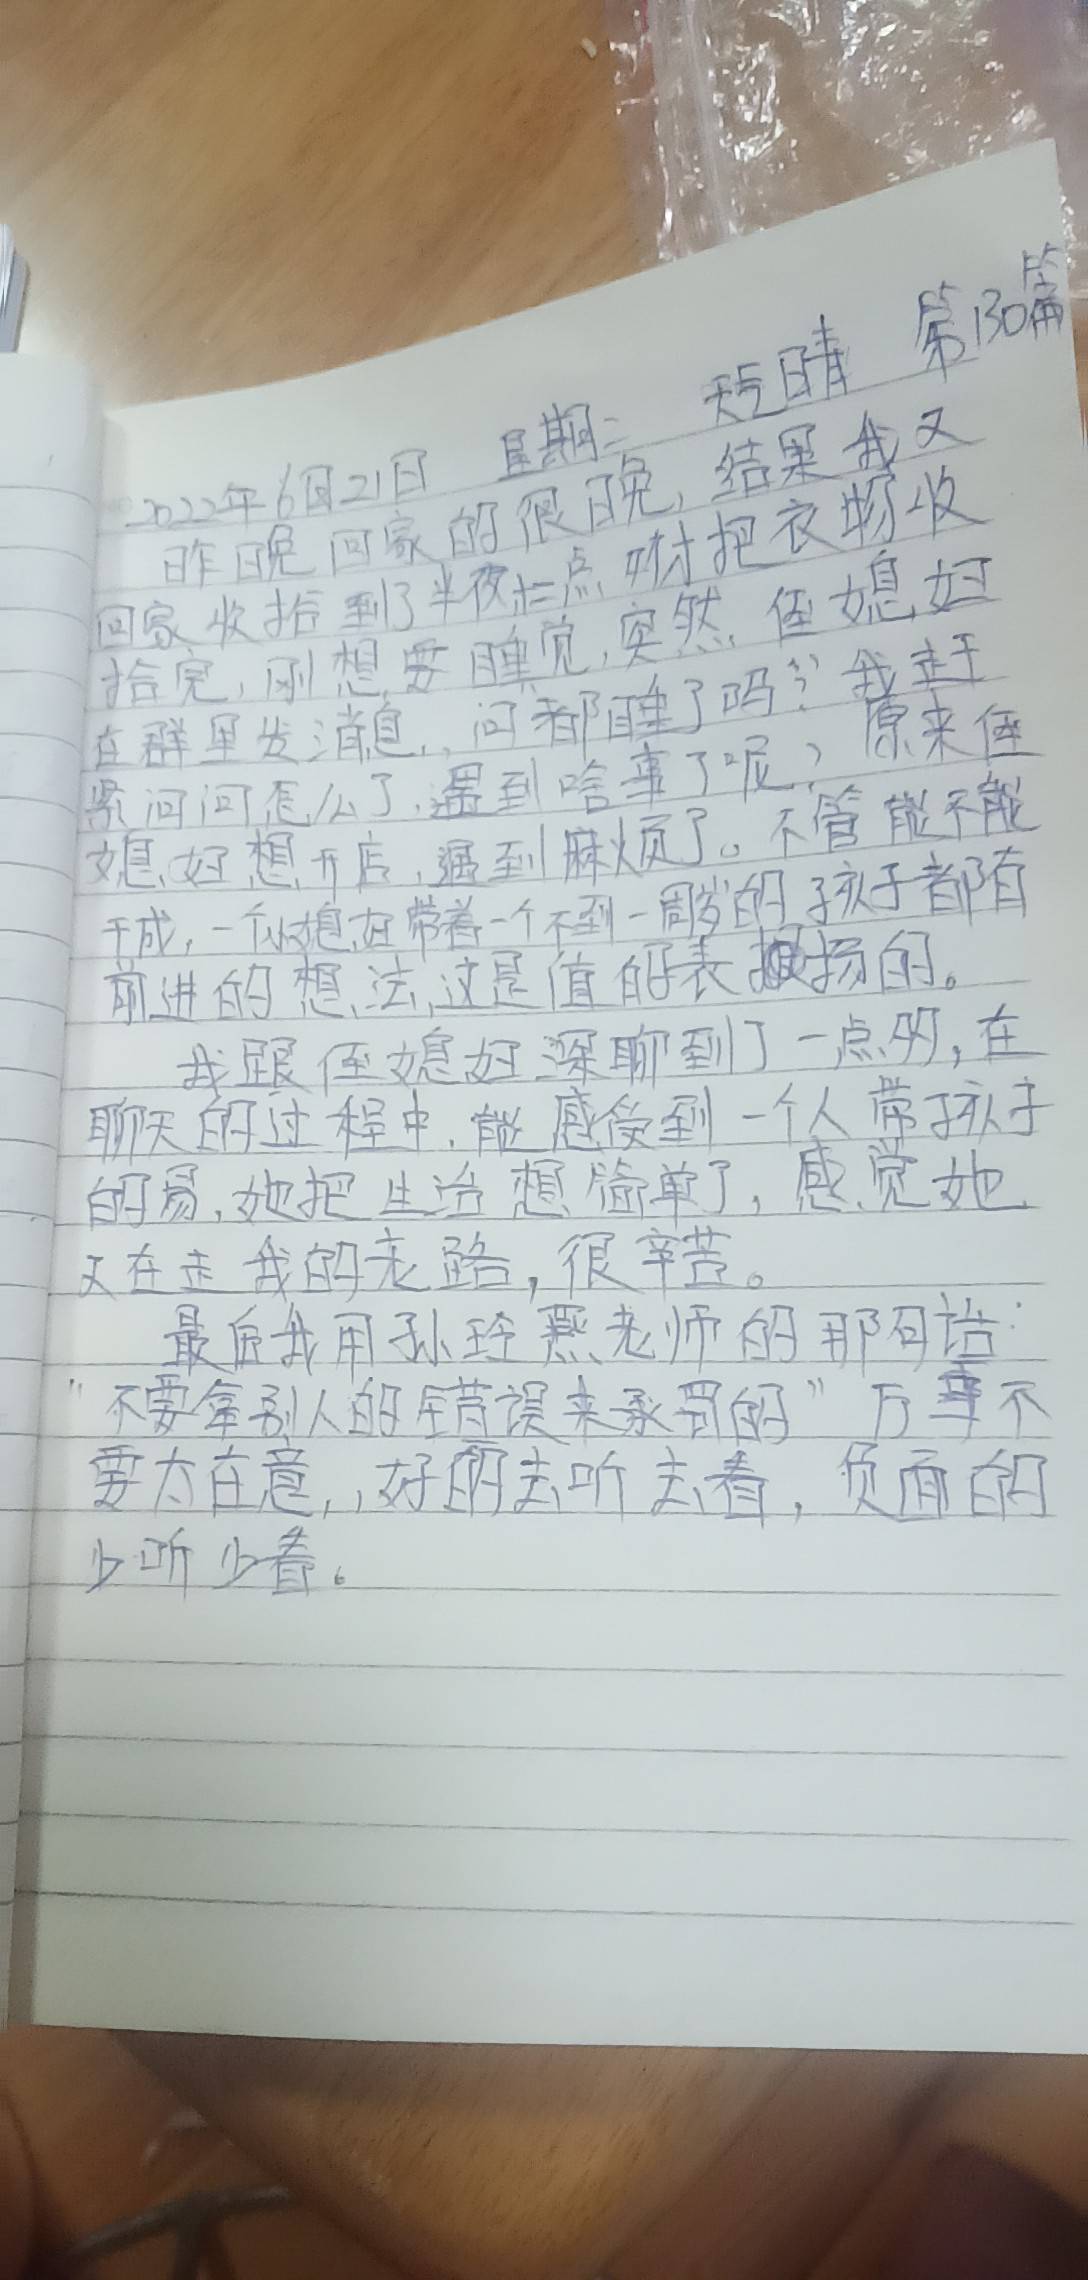 2022年6月21日 星期二 天气晴 第130篇
昨晚回家的很晚，结果我又
回家收拾到了半夜十二点 才把衣物收
拾完，刚想要睡觉，突然，侄媳妇
在群里发消息，问都睡了吗？我赶
紧问问怎么了，遇到啥事了呢？原来侄
媳妇想开店，遇到麻烦了。不管能不能
干成，一个媳妇带着一个不到一周岁的孩子都有
前进的想法，这是值的表扬的。
我跟侄媳妇深聊到了一点多，在
聊天的过程中，能感受到一个人带孩子
的易，她把生活想简单了，感觉她
又在走我的老路，很辛苦。
最后我用孙玲燕老师的那句话：
“不要拿别人的错误来承罚的”万事不
要太在意，好的去听去看，负面的
少听少看。